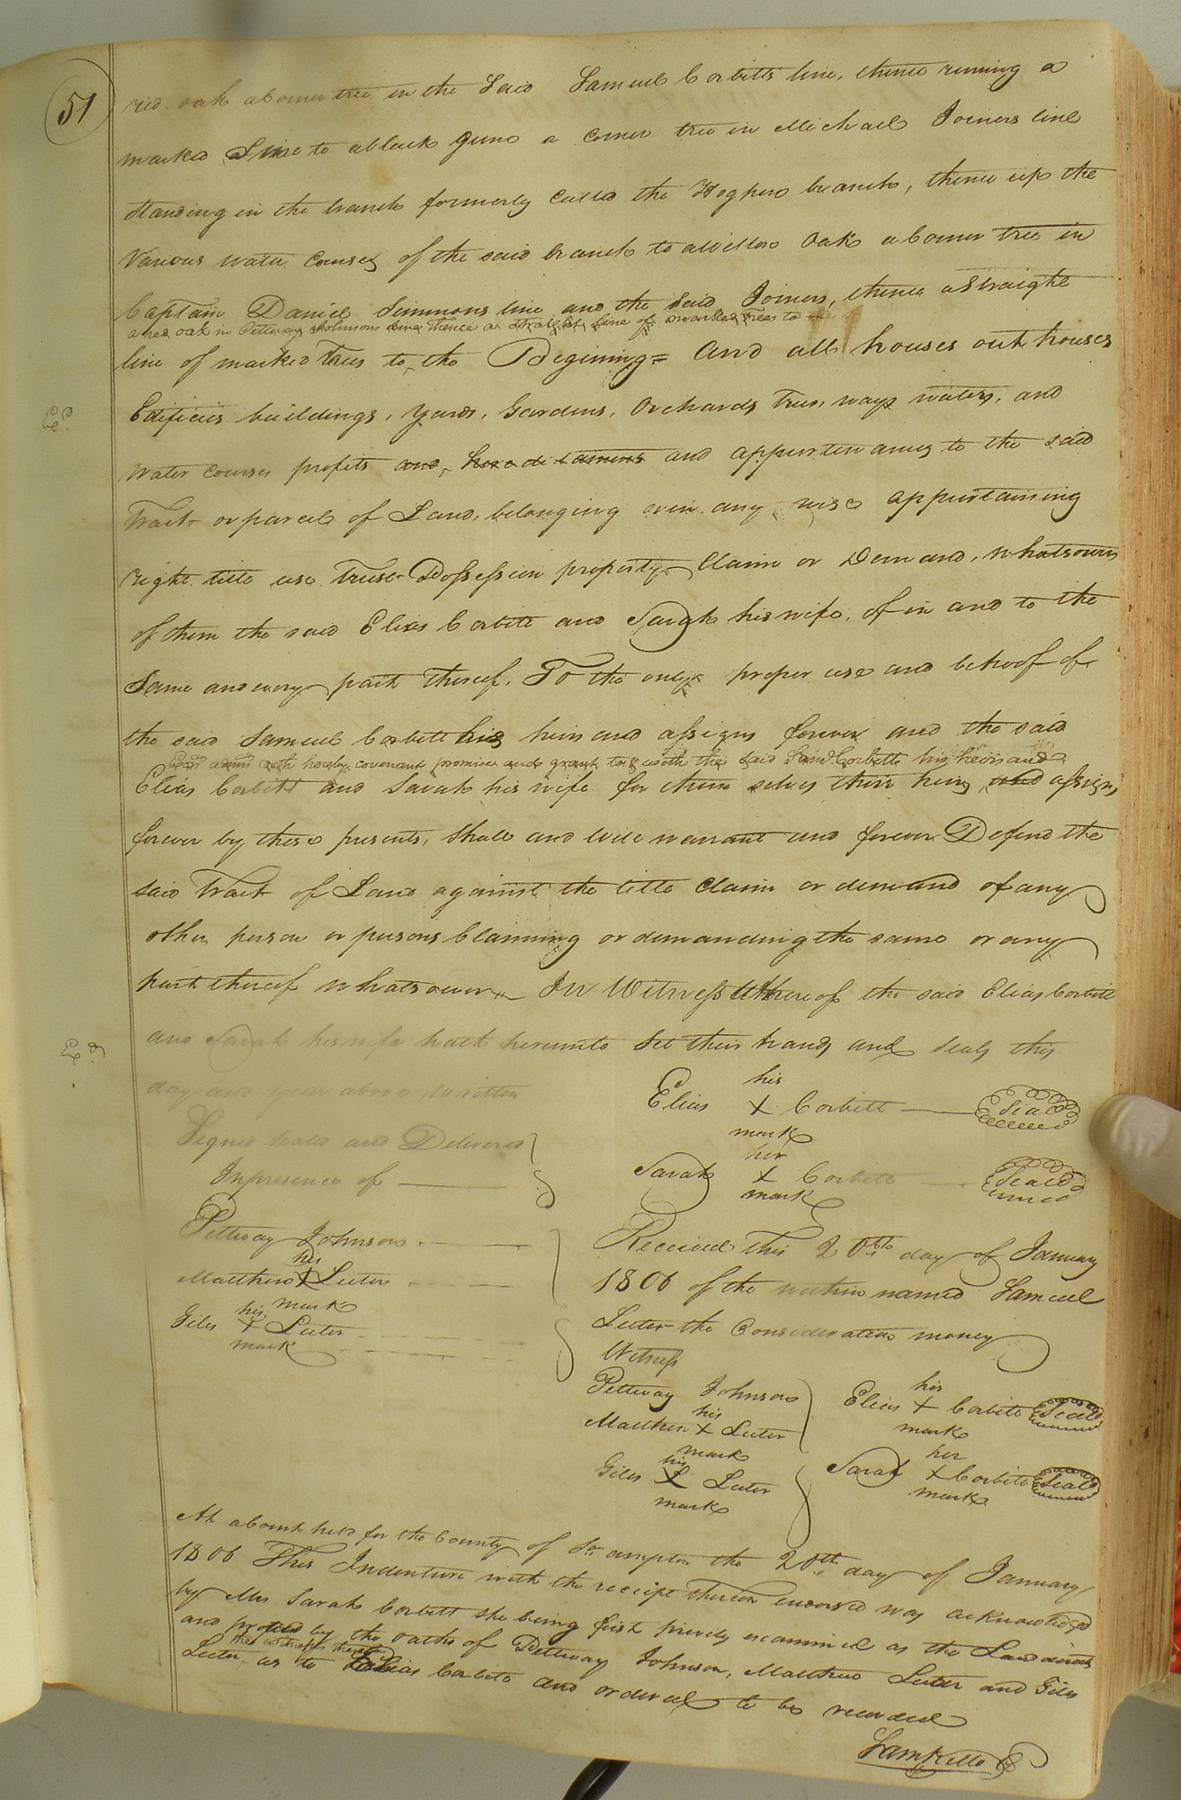 51
red oak a corner tree in the Said Samuel Corbitts line, thence runing a
marked Line to a black gum a corner tree in Michael Joiners line
standing in the branch formerly called the Hogpen branch, thence up the
Various water courses of the said branch to a willow Oak a corner tree in
Captain Daniel Simmons line and the said Joiners, thence a straight
a red oak in Pettway Johnsons line thence a straight line of marked trees to
line of marked trees to the Begining = and all houses out houses
Ed.
Edificies buildings, yards, Gardens, Orchards trees, ways waters, and
water courses profits and, hereditaments and appurtenances to the said
Tract or parcel of Land, belonging or in any wise appurtaining
right title use Trust Possession property Claim or Demand, whatsoever
of them the said Elias Corbitt and Sarah his wife, of in and to the
Same and every part thereof. To the only proper use and behoof of
the said Samuel Corbitt his heirs and assigns forever and the said
hereby covenant promise and grant to & with the said Saml Corbitt his heirs and
Elias Corbitt and Sarah his wife for them selves their heirs and assigns
forever by these presents, shall and will warrant and forever Defend the
said Tract of Land against the title claim or demand of any
other person or persons Claiming or demanding the same or any
part thereof whatsoever In Witness Whereof the said Elias Corbitt
Ed.
and Sarah his wife hath hereunto Set their hands and seals this
day and year above written
Signed seald and Delivered
Inpresence of
his
Elias X Corbitt Seal
mark
her
Sarah X Corbitt Seal
mark
Pettway Johnson
his
Matthew X Luter
mark
his
Giles X Luter
mark
Received this 20th day of January
1806 of the within named Samuel
Luter the Consideration money
Witness
Pettway Johnson
his
Matthew X Luter
mark
his
Giles X Luter
mark
his
Elias X Corbitt Seal
mark
her
Sarah X Corbitt Seal
mark
At a Court held for the County of So.ampton the 20th day of January
1806 This Indenture with the receipt thereon endorsed was acknowledged
by Mrs Sarah Corbitt she being first privily examined as the Law directs
and proved by the oaths of Pettway Johnson, Matthew Luter and Giles
the witnesses thereto
Luter as to Elias Corbitt and ordered to be recorded
Sam Kello C